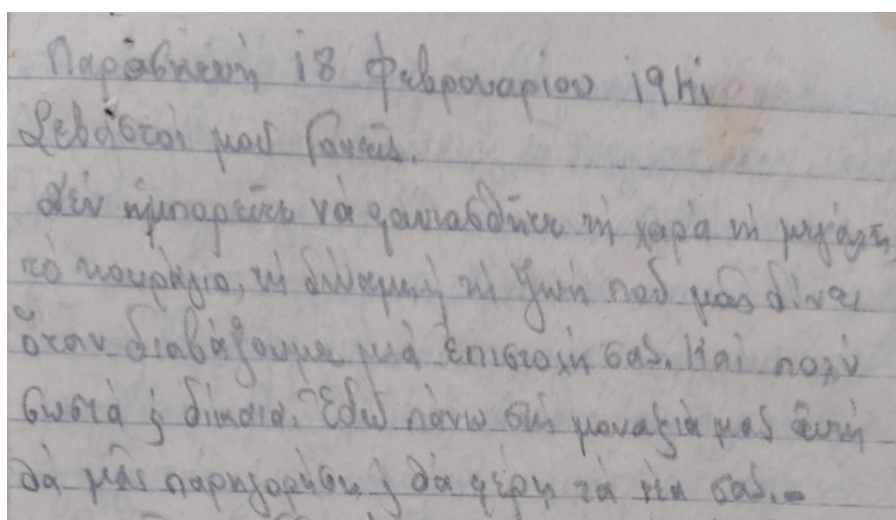 Παρασκευή 18 Φεβρουαρίου 1941
Σεβαστοί μου Γονεῖς.
Δέν ἠμπορεῖτε νά φαντασθῆτε τή χαρά τή μεγάλη,
τό κουράγιο, τή δύναμη, τή ζωή πού μᾶς δίνει
ὅταν διαβάζουμε μιά ἐπιστολή σας. Καί πολύ
σωστά ϗ δίκαια. Ἐδῶ πάνω στή μοναξιά μας αὐτή
θά μᾶς παρηγορήση ϗ θά φέρη τά νέα σας.-